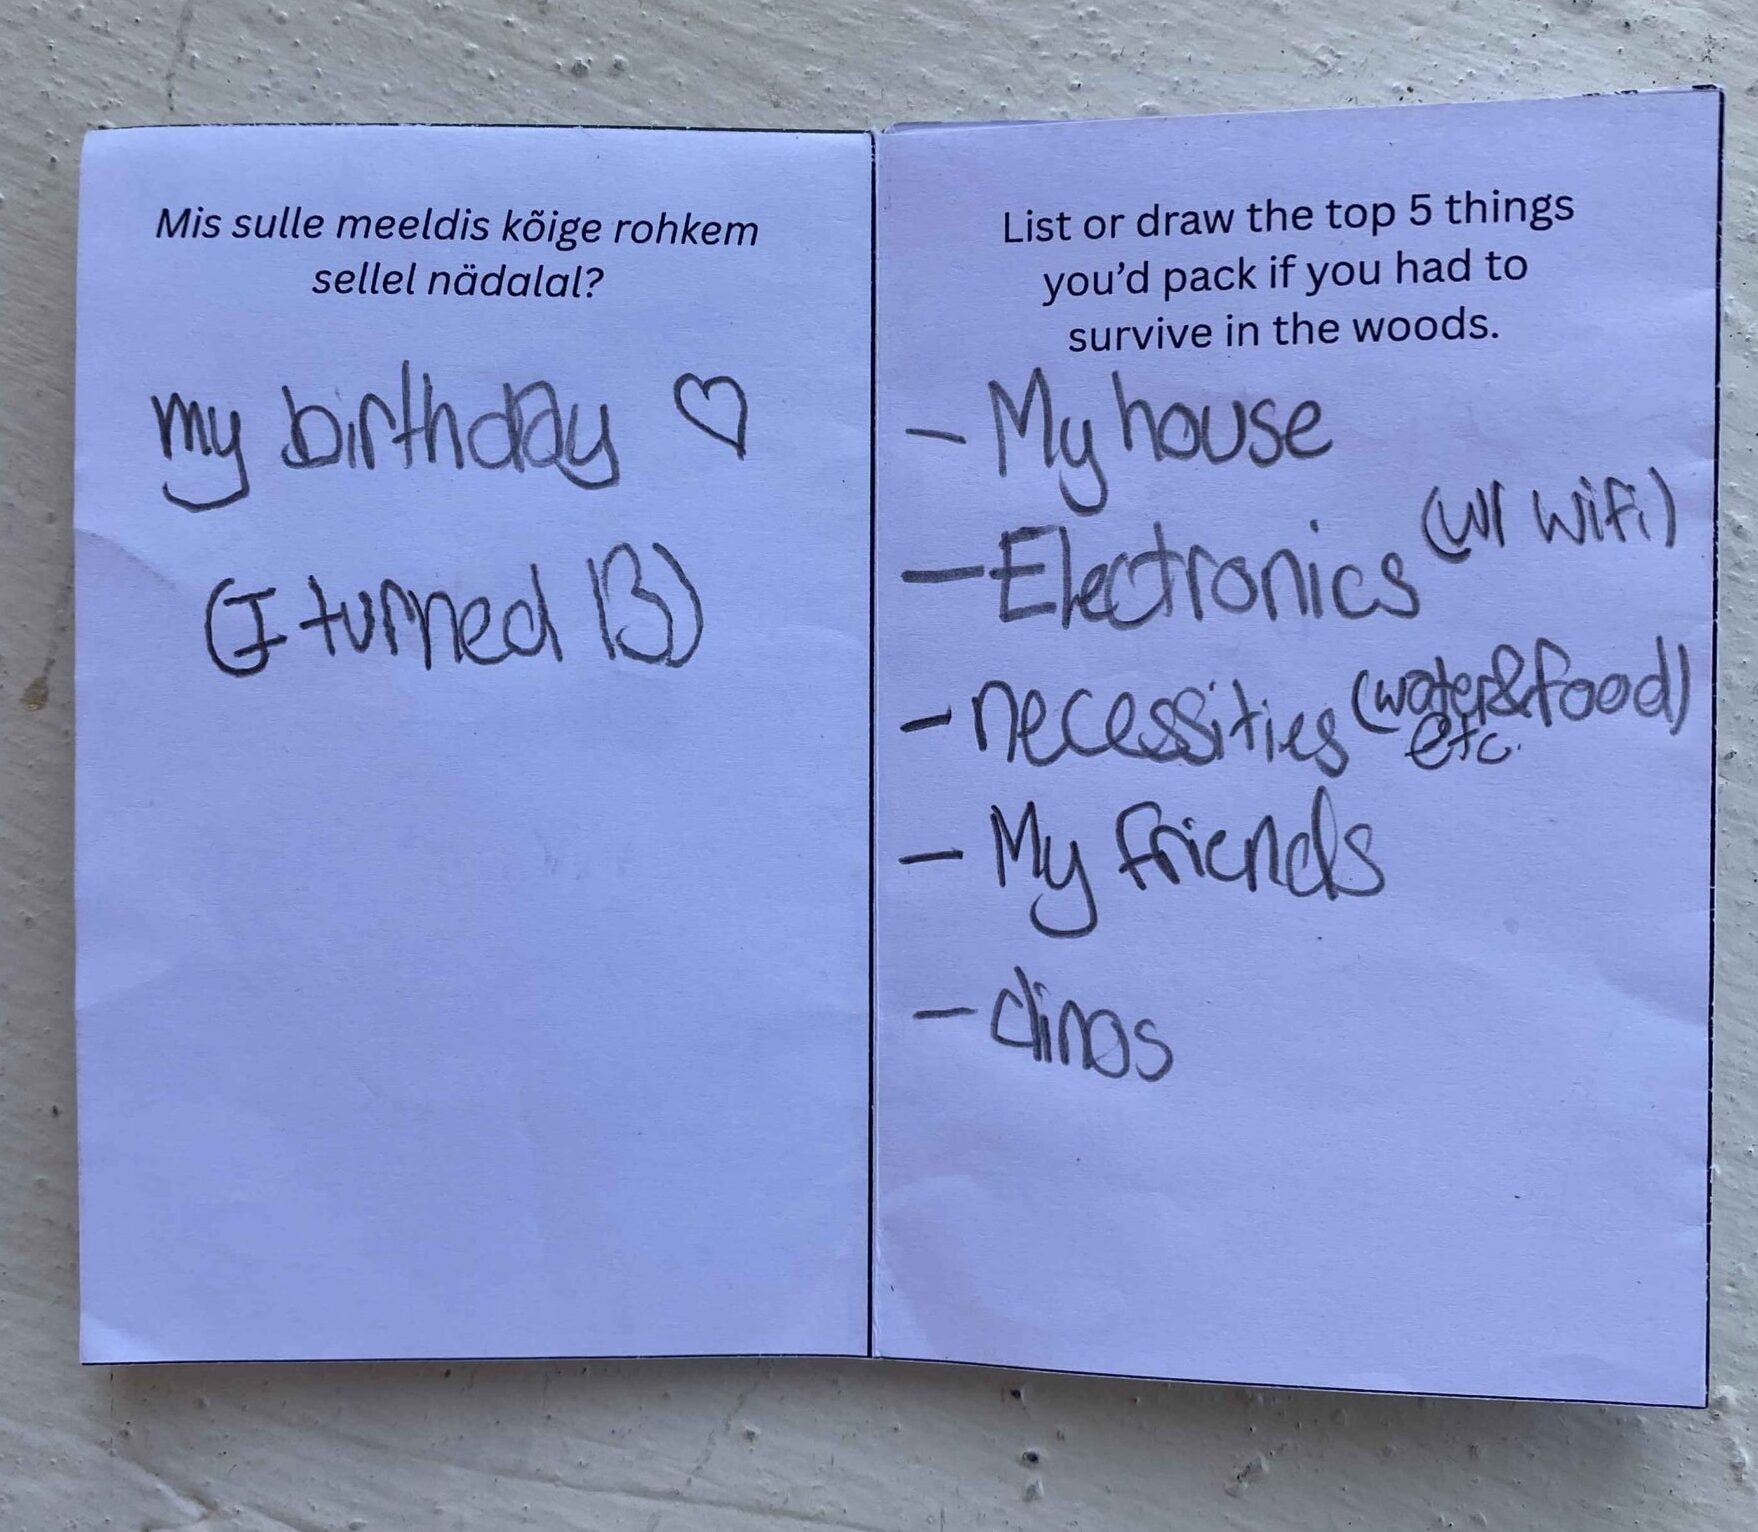 Mis sulle meeldis kõige rohkem
sellel nädalal?
my birthday ♡
(I turned 13)
List or draw the top 5 things
you'd pack if you had to
survive in the woods.
- My house
- Electronics (w/ wifi)
- necessities (water & food)
etc.
- My friends
- dinos